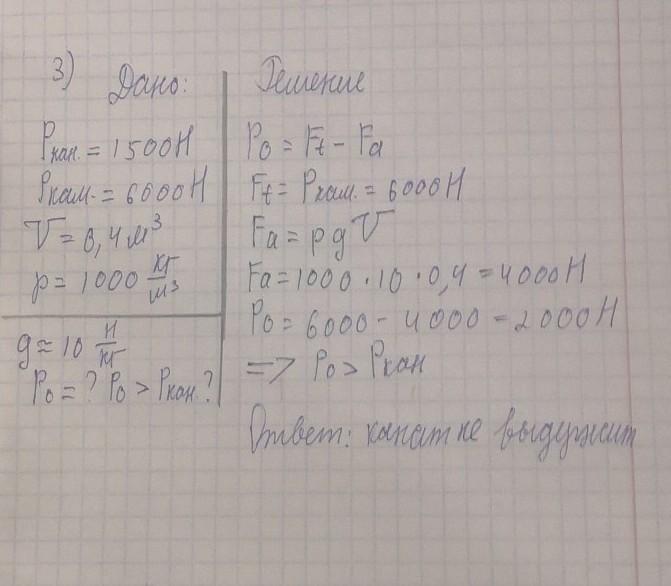 3) Дано:
Pкан. = 1500Н
Pкам. = 6000Н
V = 0,4 м³
p = 1000 кг/м³
g ≈ 10 Н/кг
P₀ = ? P₀ > Pкан.?
Решение
P₀ = Ft - Fa
Ft = Pкам. = 6000Н
Fa = pgV
Fa = 1000 · 10 · 0,4 = 4000Н
P₀ = 6000 - 4000 = 2000Н
=> P₀ > Pкан
Ответ: канат не выдержит